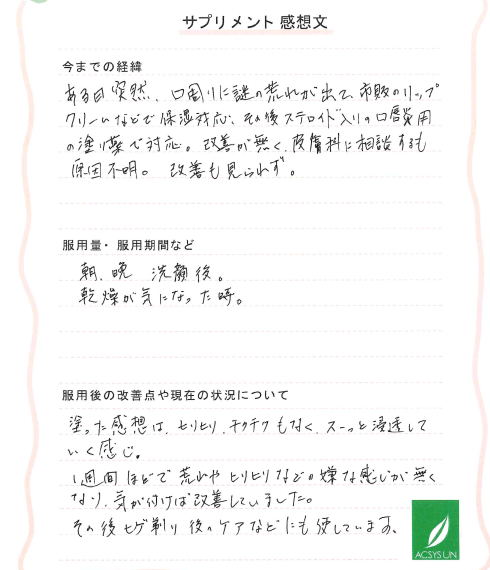 サプリメント 感想文
今までの経緯
ある日突然、口周りに謎の荒れが出て、市販のリップ
クリームなどで保湿対応、その後ステロイド入りの口唇炎用
の塗り薬で対応。改善が無く、皮膚科に相談するも
原因不明。 改善も見られず。
服用量・服用期間など
朝、晩 洗顔後。
乾燥が気になった時。
服用後の改善点や現在の状況について
塗った感想は、ヒリヒリ、チクチクもなく、スーッと浸透して
いく感じ。
1週間ほどで荒れやヒリヒリなどの嫌な感じが無く
なり、気が付けば改善していました。
その後ヒゲ剃り後のケアなどにも使しています。
ACSYSUN